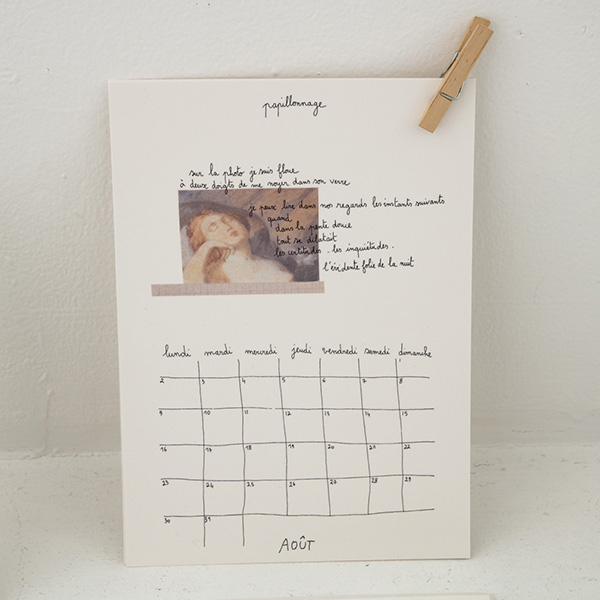 papillonnage
sur la photo je suis floue
à deux doigts de me noyer dans son verre
je peux lire dans nos regards les instants suivants
quand
dans la pente douce
tout se dilatait
les certitudes . les inquiétudes .
l'évidente folie de la nuit
lundi mardi mercredi jeudi vendredi samedi dimanche
2 3 4 5 6 7 8
9 10 11 12 13 14 15
16 17 18 19 20 21 22
23 24 25 26 27 28 29
30 31
AOÛT